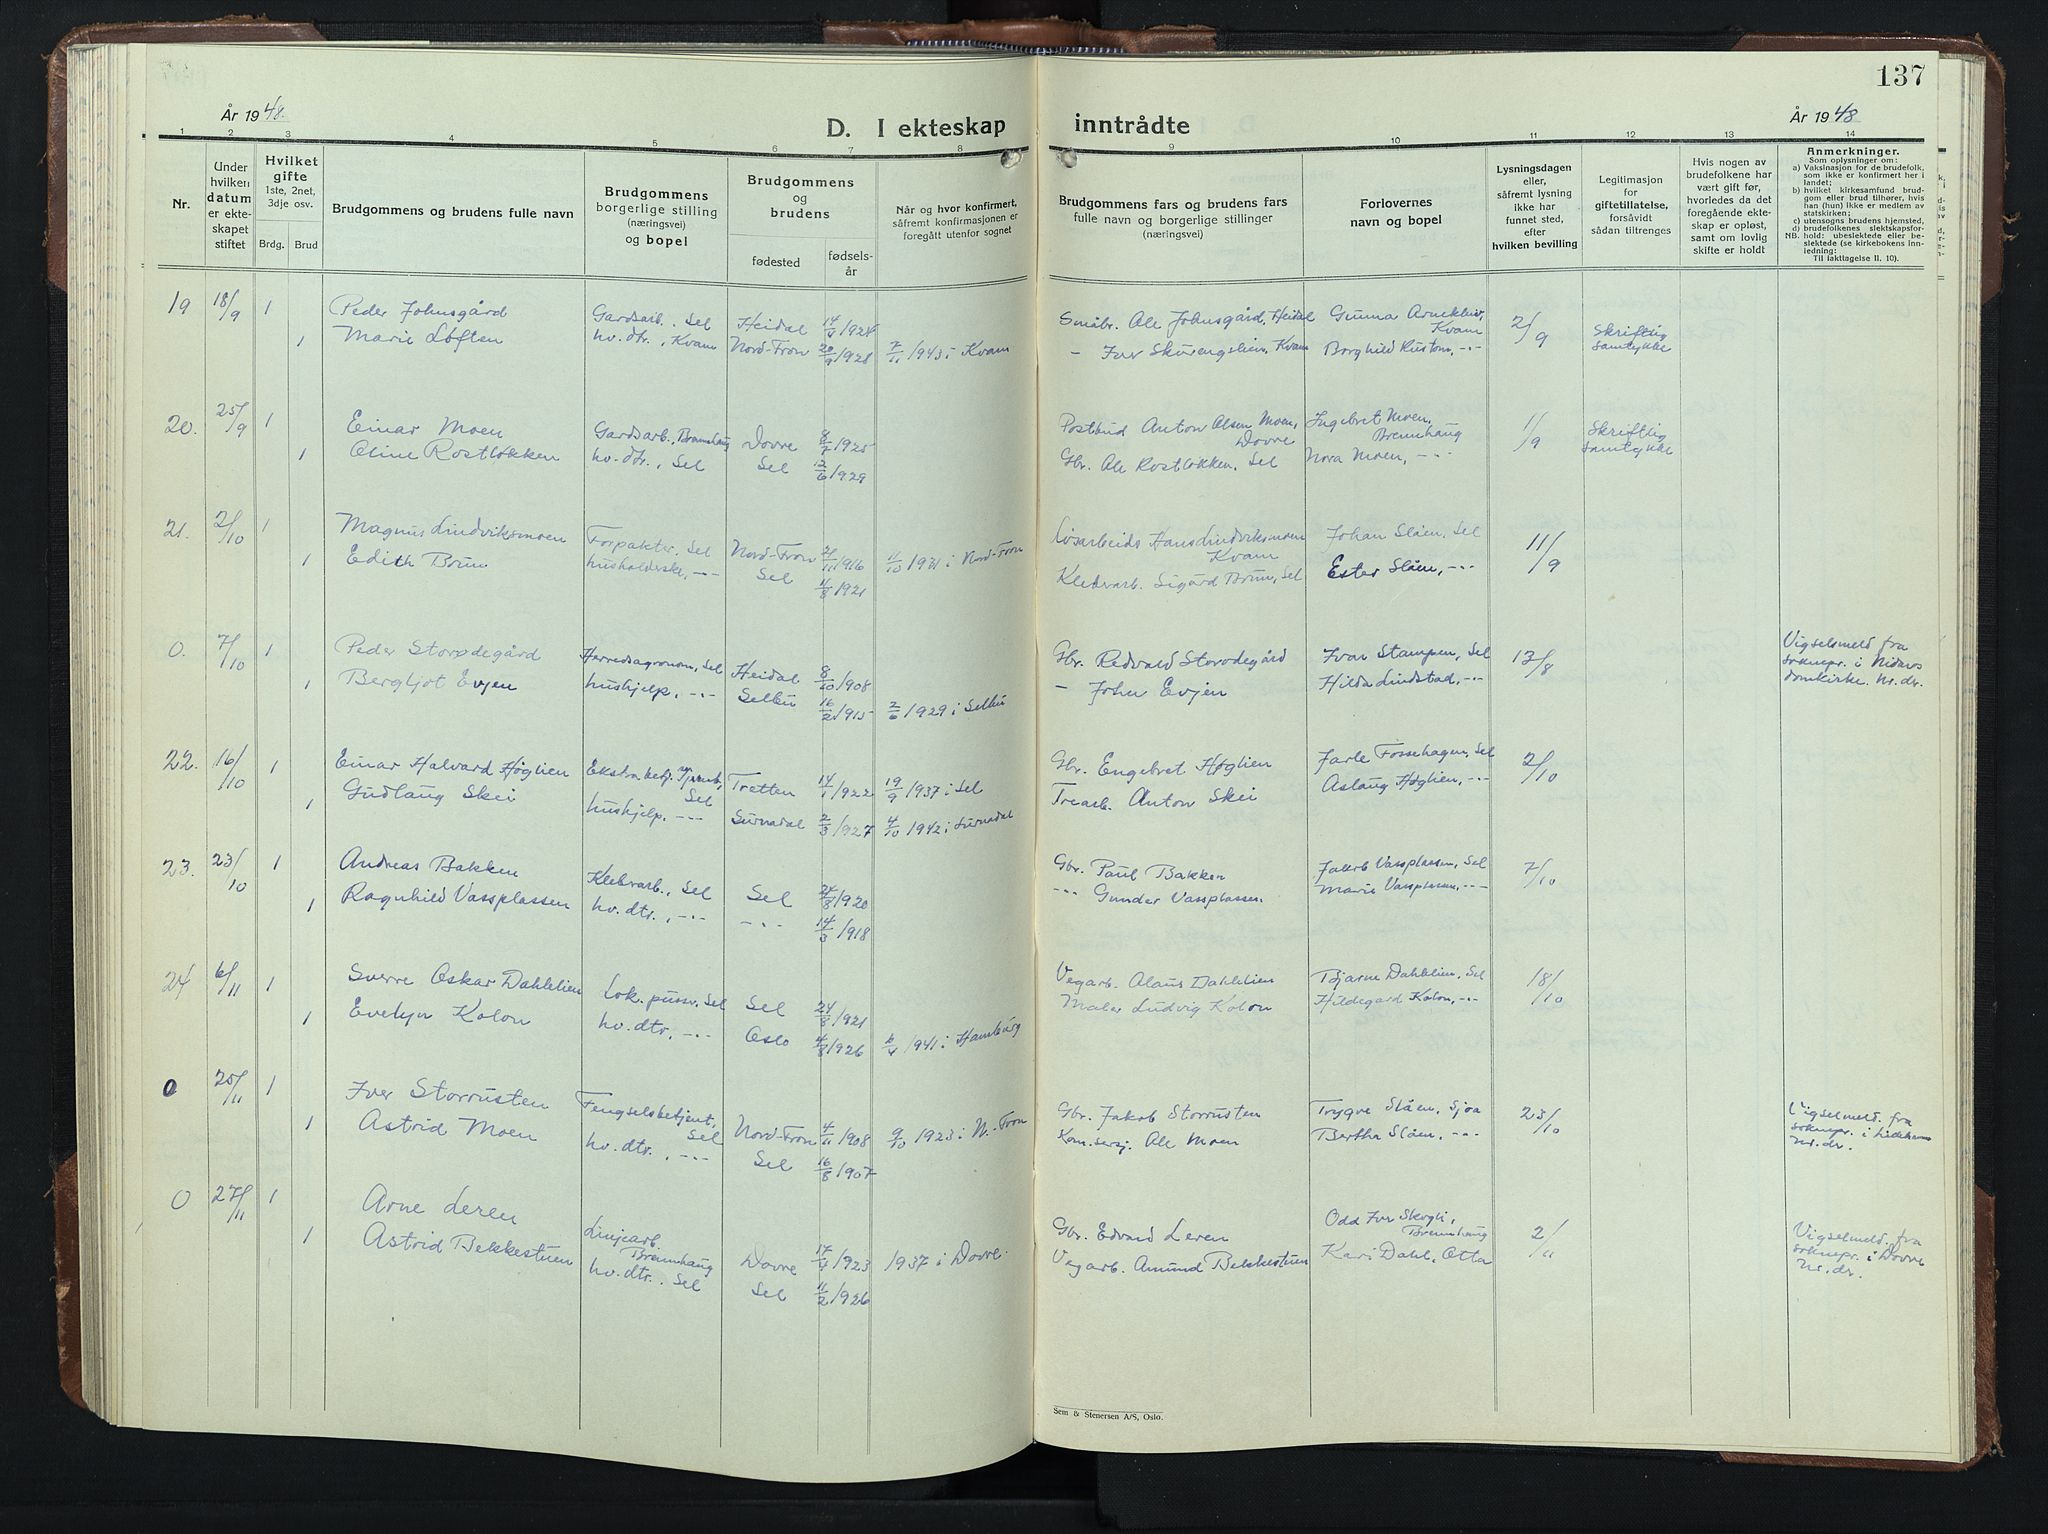 137
År 1948.
År 1948
D. I ekteskap inntrådte
1 2 3 4 5 6 7 8 9 10 11 12 13 14
Nr.
Under hvilken datum er ekteskapet stiftet
Hvilket gifte 1ste, 2net, 3dje osv.
Brdg. Brud
Brudgommens og brudens fulle navn
Brudgommens borgerlige stilling (næringsvei) og bopel
Brudgommens og brudens
fødested
fødselsår
Når og hvor konfirmert, såfremt konfirmasjonen er foregått utenfor sognet
Brudgommens fars og brudens fars fulle navn og borgerlige stillinger (næringsvei)
Forlovernes navn og bopel
Lysningsdagen eller, såfremt lysning ikke har funnet sted, efter hvilken bevilling
Legitimasjon for giftetillatelse, forsåvidt sådan tiltrenges
Hvis nogen av brudefolkene har vært gift før, hvorledes da det foregående ekteskap er opløst, samt om lovlig skifte er holdt
Anmerkninger.
Som oplysninger om:
a) Vaksinasjon for de brudefolk, som ikke er konfirmert her i landet;
b) hvilket kirkesamfund brudgom eller brud tilhører, hvis han (hun) ikke er medlem av statskirken;
c) utensogns brudens hjemsted,
d) brudefolkenes slektskapsforhold: ubeslektede eller beslektede (se kirkebokens innledning:
NB. Til iakttagelse II. 10).
19 18/9 1 Peder Johnsgård Gardsarb., Sel Heidal 14/4 1924 Småbr. Ole Johnsgård, Heidal Gunna Arneklev, Kvam 2/9 Skriftlig samtykke
1 Marie Løften hv. dtr., Kvam Nord-Fron 20/9 1928 7/11 1943 i Kvam - Iver Skurengslien, Kvam Borghild Rustom, -"-
20. 25/9 1 Einar Moen Gardsarb., Brennhaug Dovre 8/7 1925 Postbud Anton Olsen Moen, Dovre Ingebret Moen, Brennhaug 1/9 Skriftlig samtykke
1 Oline Rostløkken hv. dtr., Sel Sel 12/6 1929 Gbr. Ole Rostløkken, Sel Nora Moen, -"-
21. 2/10 1 Magnus Lindviksmoen Forpakter, Sel Nord-Fron 21/11 1916 11/10 1931 i Nord-Fron Løsarbeids Hans Lindviksmoen Kvam Johan Slåen, Sel 11/9
1 Edith Brun husholdske, -"- Sel 11/8 1921 Klebvarb. Sigurd Brun, Sel Ester Slåen, -"-
0. 7/10 1 Peder Storødegård Herredsagronom, Sel Heidal 8/10 1908 Gbr. Redvald Storodegård Ivar Stampen, Sel 13/8 Vigselmeld fra soknepr. i Nidaros domkirke. Nr. dr.
1 Bergljot Evjen hushjelp, -"- Selbu 16/2 1915 2/6 1929 i Selbu - John Evjen Hilda Lindstad, -"-
22. 16/10 1 Einar Halvard Høglien Ekstrabetj. Sel Tretten 14/1 1922 19/9 1937 i Sel Gbr. Engebret Høglien Jarle Fossehagen, Sel 2/10
1 Gudlaug Skei hushjelp, -"- Surnadal 2/3 1927 4/10 1942 i Surnadal Trearb. Anton Skei Aslaug Høglien, -"-
23. 23/10 1 Andreas Bakken Klebvarb., Sel Sel 24/8 1920 Gbr. Paul Bakken Jakob Vassplassen, Sel 7/10
1 Ragnhild Vassplassen hv. dtr., -"- -"- 14/3 1918 -"- Gunder Vassplassen Marie Vassplassen, -"-
24 6/11 1 Sverre Oskar Dahlelien Lok. pussr. Sel Sel 24/8 1921 Vegarb. Olaus Dahlelien Bjarne Dahlelien, Sel 18/10
1 Evelyn Kolon hv. dtr., -"- Oslo 4/8 1926 6/4 1941 i Hamburg Maler Ludvig Kolon Hildegard Kolon, -"-
0 20/11 1 Iver Storrusten Fengselsbetjent, Sel Nord-Fron 4/11 1908 9/10 1923 i N.-Fron Gbr. Jakob Storrusten Trygve Slåen, Sjoa 23/10 Vigselmeld. fra soknepr. i Nr. dr.
1 Astrid Moen hv. dtr., -"- Sel 16/8 1907 Kom.sersj. Ole Moen Bertha Slåen, -"-
0 27/11 1 Arne Leren Linjearb. Brennhaug Dovre 17/4 1923 1937 i Dovre. Gbr. Edvard Leren Odd Iver Skogli, Brennhaug 2/11 Vigselmeld. fra soknepr. i Dovre Nr. dr.
1 Astrid Bekkestuen hv. dtr., Sel Sel 11/2 1926 Vegarb. Amund Bekkestuen Kari Dahl, Otta
Sem & Stenersen A/S, Oslo.